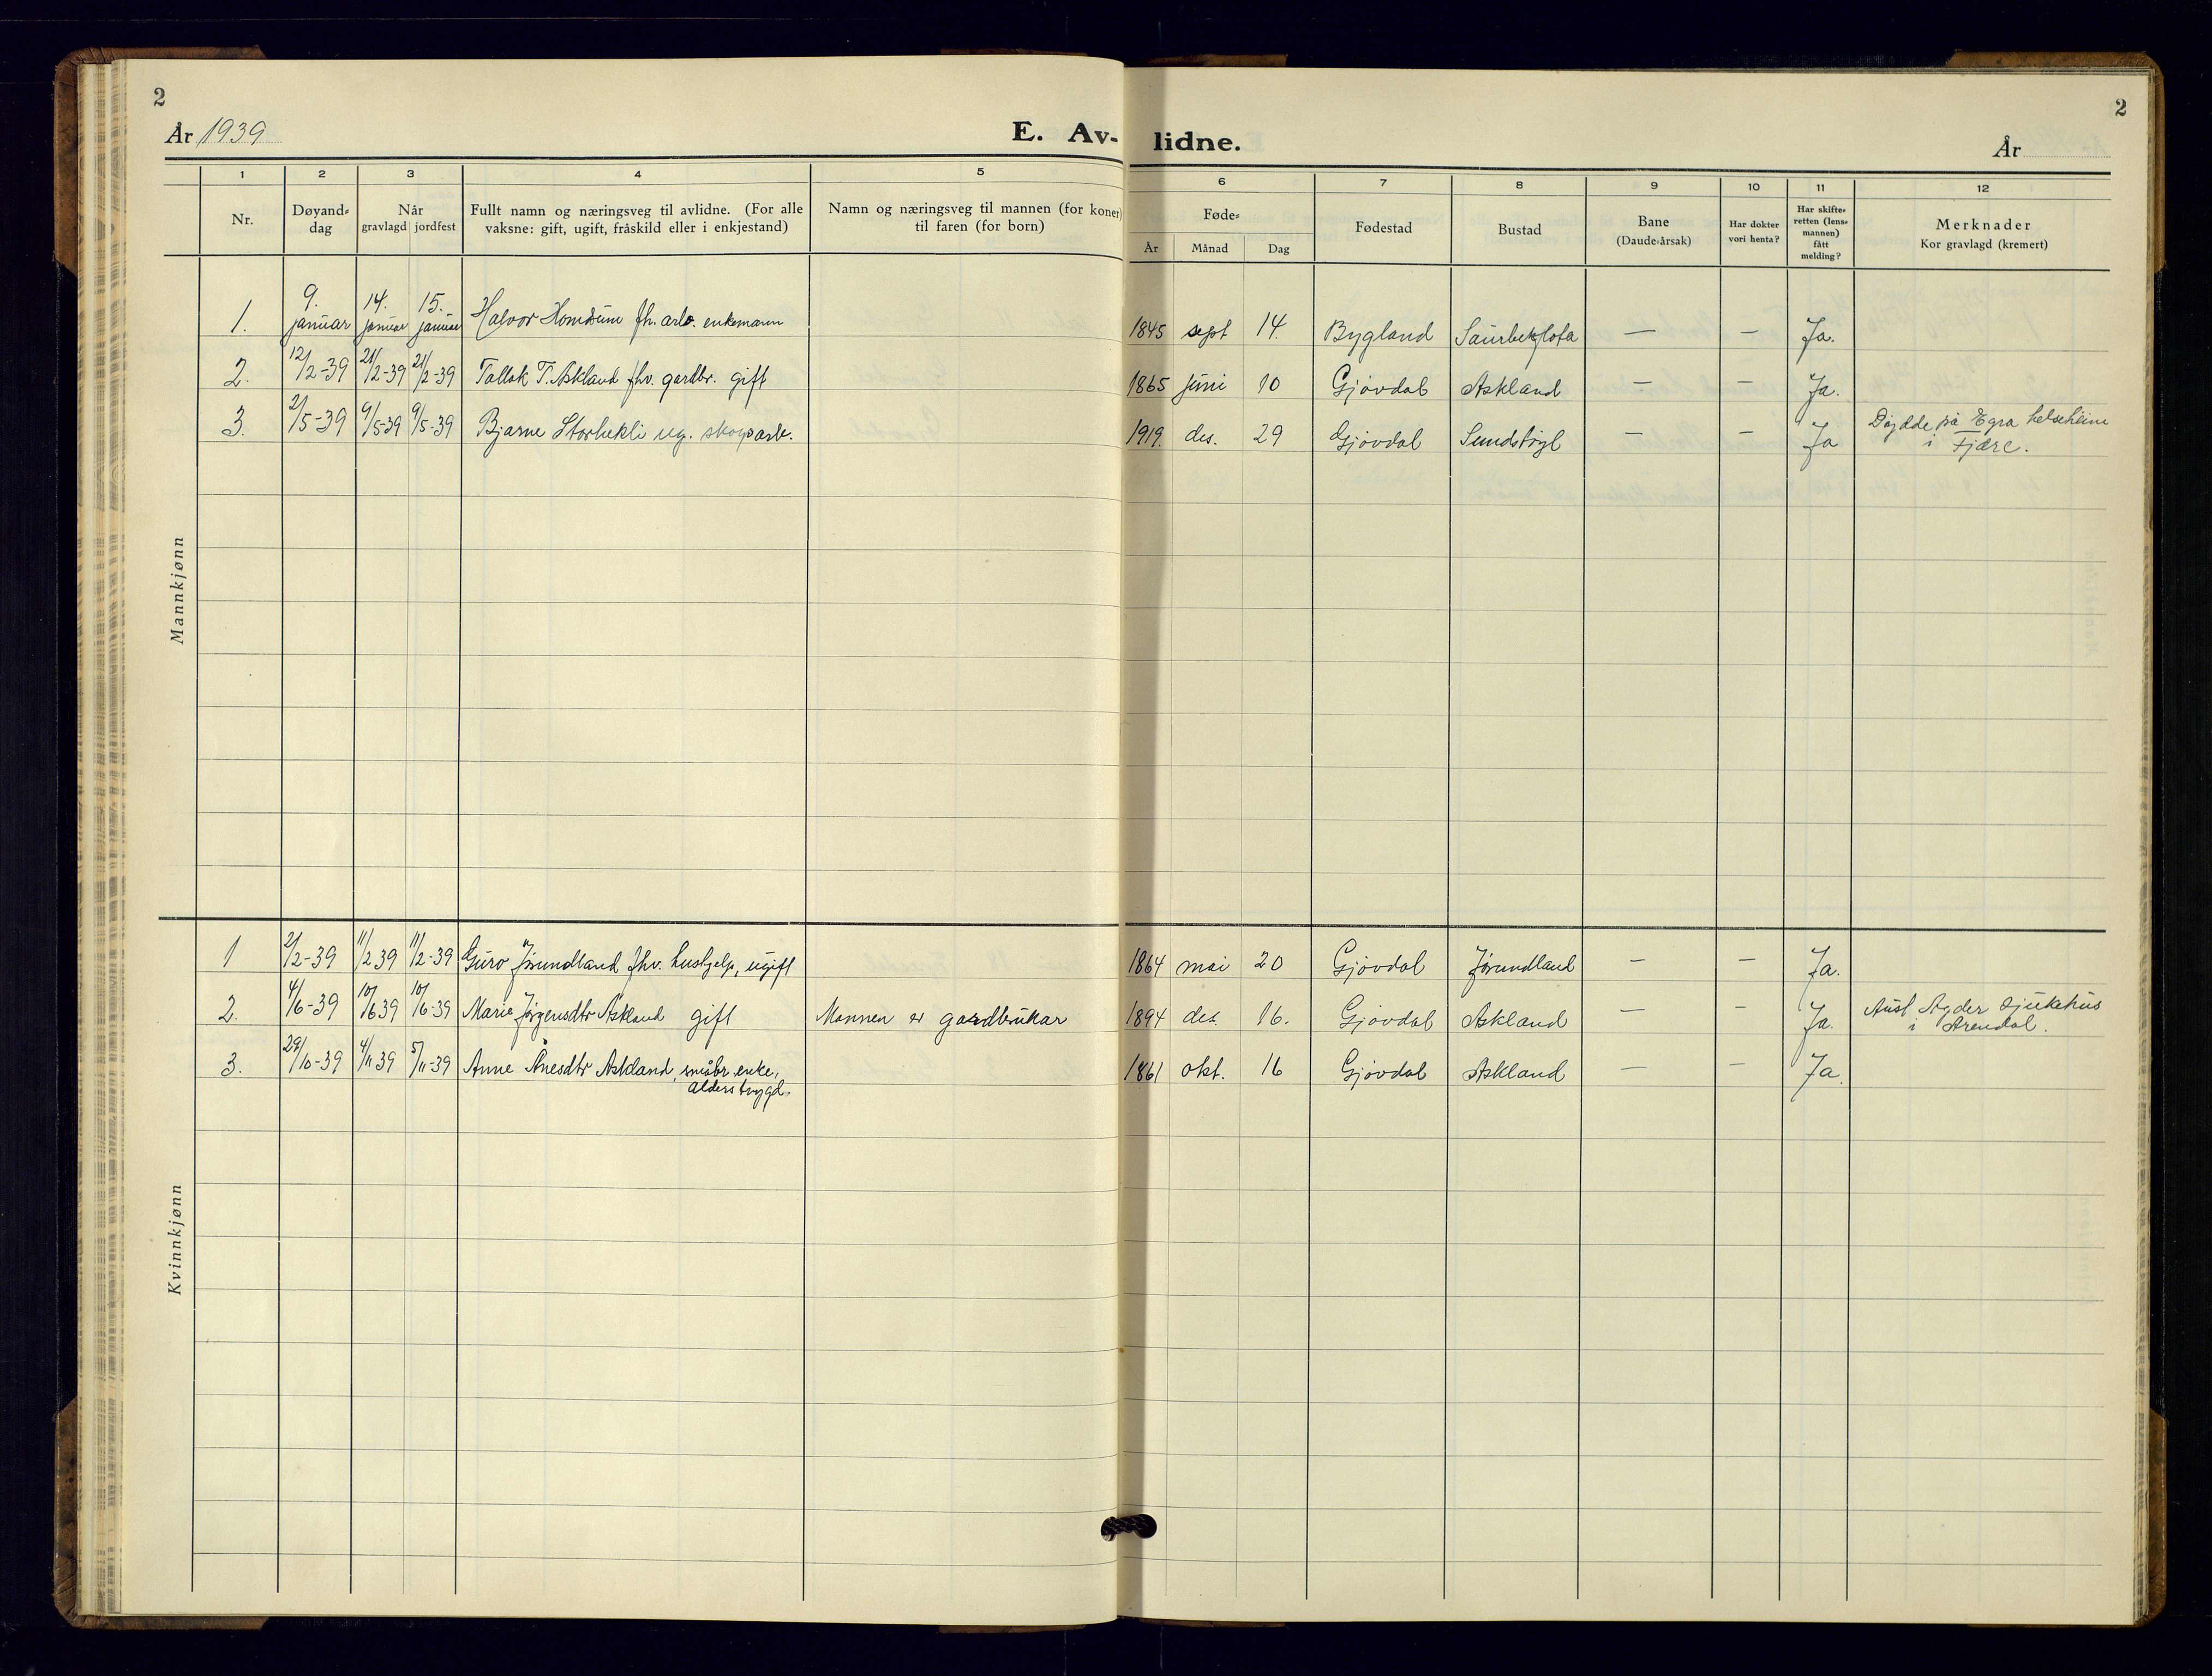 2
År 1939
E. Av-
1 2 3 4 5
Nr.
Døyand-
dag
Når
gravlagd jordfest
Fullt namn og næringsveg til avlidne. (For alle
vaksne: gift, ugift, fråskild eller i enkjestand)
Namn og næringsveg til mannen (for koner)
til faren (for born)
Mannkjønn
1. 9. januar 14. januar 15. januar Halvor fh. arb. enkemann
2. 12/2-39 21/2-39 21/2-39 Tallak T. Askland fhv. gardbr. gift
3. 2/5-39 9/5-39 9/5-39 Bjarne Storhekli ug. skogsarb.
Kvinnkjønn
1 2/2-39 11/2 39 11/2-39 Guro Jørundland fhv. hushjelp, ugift
2. 4/6-39 10/6 39 10/6-39 Marie Jørgensdtr Askland gift Mannen er gardbrukar
3. 29/10-39 4/11 39 5/11-39 Anne Ånesdtr Askland, småbr. enke,
alderstrygd.
2
lidne.
År
6 7 8 9 10 11 12
Føde-
År Månad Dag
Fødestad
Bustad
Bane
(Daude-årsak)
Har dokter
vori henta?
Har skifte-
retten (lens-
mannen)
fått
melding?
Merknader
Kor gravlagd (kremert)
1845 sept 14. Bygland — — Ja.
1865 juni 10 Gjøvdal Askland — — Ja.
1919. des. 29 Gjøvdal Sundstøyl — — Ja Døydde på helseheim
i Fjære.
1864 mai 20 Gjøvdal Jørundland — — Ja.
1894 des. 16. Gjøvdal Askland — — Ja. Aust Agder sjukehus
i Arendal.
1861 okt. 16 Gjøvdal Askland — — Ja.